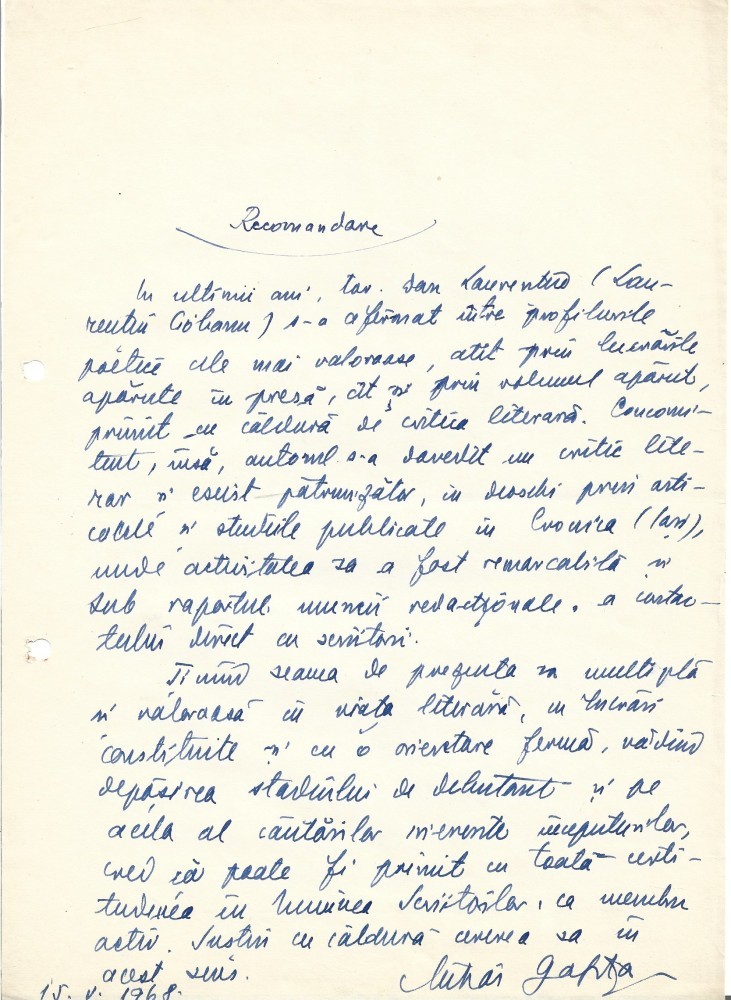 Recomandare
In ultimii ani, tov. Dan Laurențiu (Lau-
rențiu Ciobanu) s-a afirmat între profilurile
poetice cele mai valoroase, atît prin lucrările
apărute în presă, cît și prin volumul apărut,
primit cu căldură de critica literară. Concomi-
tent, însă, autorul s-a dovedit un critic lite-
rar și eseist pătrunzător, în deosebi prin arti-
colele și studiile publicate în Cronica (Iași),
unde activitatea sa a fost remarcabilă și
sub raportul muncii redacționale, a contac-
tului direct cu scriitori.
Ținînd seama de prezența sa multiplă
și valoroasă în viața literară, cu lucrări
constituite și cu o orientare fermă, vădind
depășirea stadiului de debutant și pe
acela al căutărilor inerente începuturilor,
cred că poate fi primit cu toată certi-
tudinea în Uniunea Scriitorilor, ca membru
activ. Susțin cu căldură cererea sa în
acest sens.
Mihai Gafița
15. V. 1968.